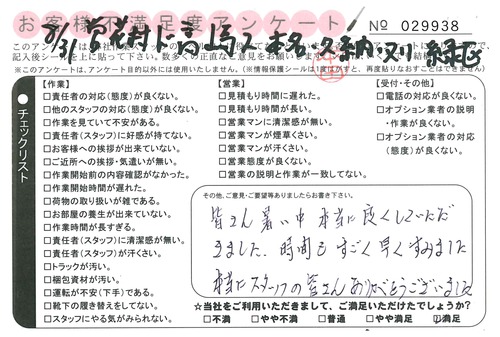 お客様不満足度アンケート
№ 029938
8/31
緑区
記入後シールを上に貼って下さい。
※このアンケートは、アンケート目的以外には使用いたしません。
チェックリスト
【作業】
□責任者の対応(態度)が良くない。
□他のスタッフの対応(態度)が良くない。
□作業を見ていて不安がある。
□責任者(スタッフ)に好感が持てない。
□お客様への挨拶が出来ていない。
□ご近所への挨拶・気遣いが無い。
□作業開始前の内容確認がなかった。
□作業開始時間が遅れた。
□荷物の取り扱いが雑である。
□お部屋の養生が出来ていない。
□作業時間が長すぎる。
□責任者(スタッフ)に清潔感が無い。
□責任者(スタッフ)が汗くさい。
□トラックが汚い。
□梱包資材が汚い。
□運転が不安(下手)である。
□靴下の履き替えをしてない。
□スタッフにやる気がみられない。
【営業】
□見積もり時間に遅れた。
□見積もり時間が長い。
□営業マンに清潔感が無い。
□営業マンが煙草くさい。
□営業マンが汗くさい。
□営業態度が良くない。
□営業の説明と作業が一致してない。
【受付・その他】
□電話の対応が良くない。
□オプション業者の説明
・作業が良くない。
□オプション業者の対応
(態度)が良くない。
その他、ご意見・ご要望等ありましたらお書き下さい。
皆さん暑い中本当に良くしていただ
きました。時間もすごく早くすみました
本当にスタッフの皆さんありがとうございました
☆当社をご利用いただきまして、ご満足いただけたでしょうか?
□不満 □やや不満 □普通 □やや満足 □満足